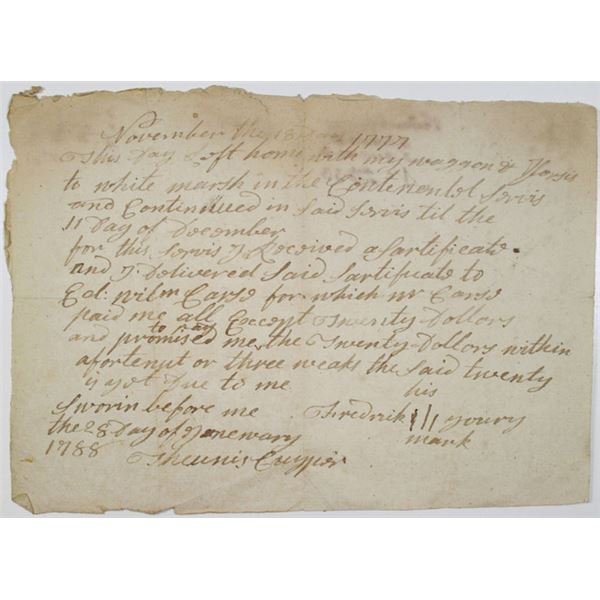 November the 18 Day 1777
This Day Left home with my waggon & Horsis
to white marsh in the Continentel Servis
and Continnued in Said Servis til the
11 Day of December
for this Servis I Received a Sartificate
and I Delivered Said Sartificate to
Col: Wilm Carso for which mr Carso
paid me all Except Twenty Dollors
and promised to pay me the Twenty Dollors within
a fortenyt or three weaks the Said twenty
is yet Due to me
his
Sworin before me Fredrik ||| youry
the 28 Day of Janewary mark
1788 Theunis Cuyper